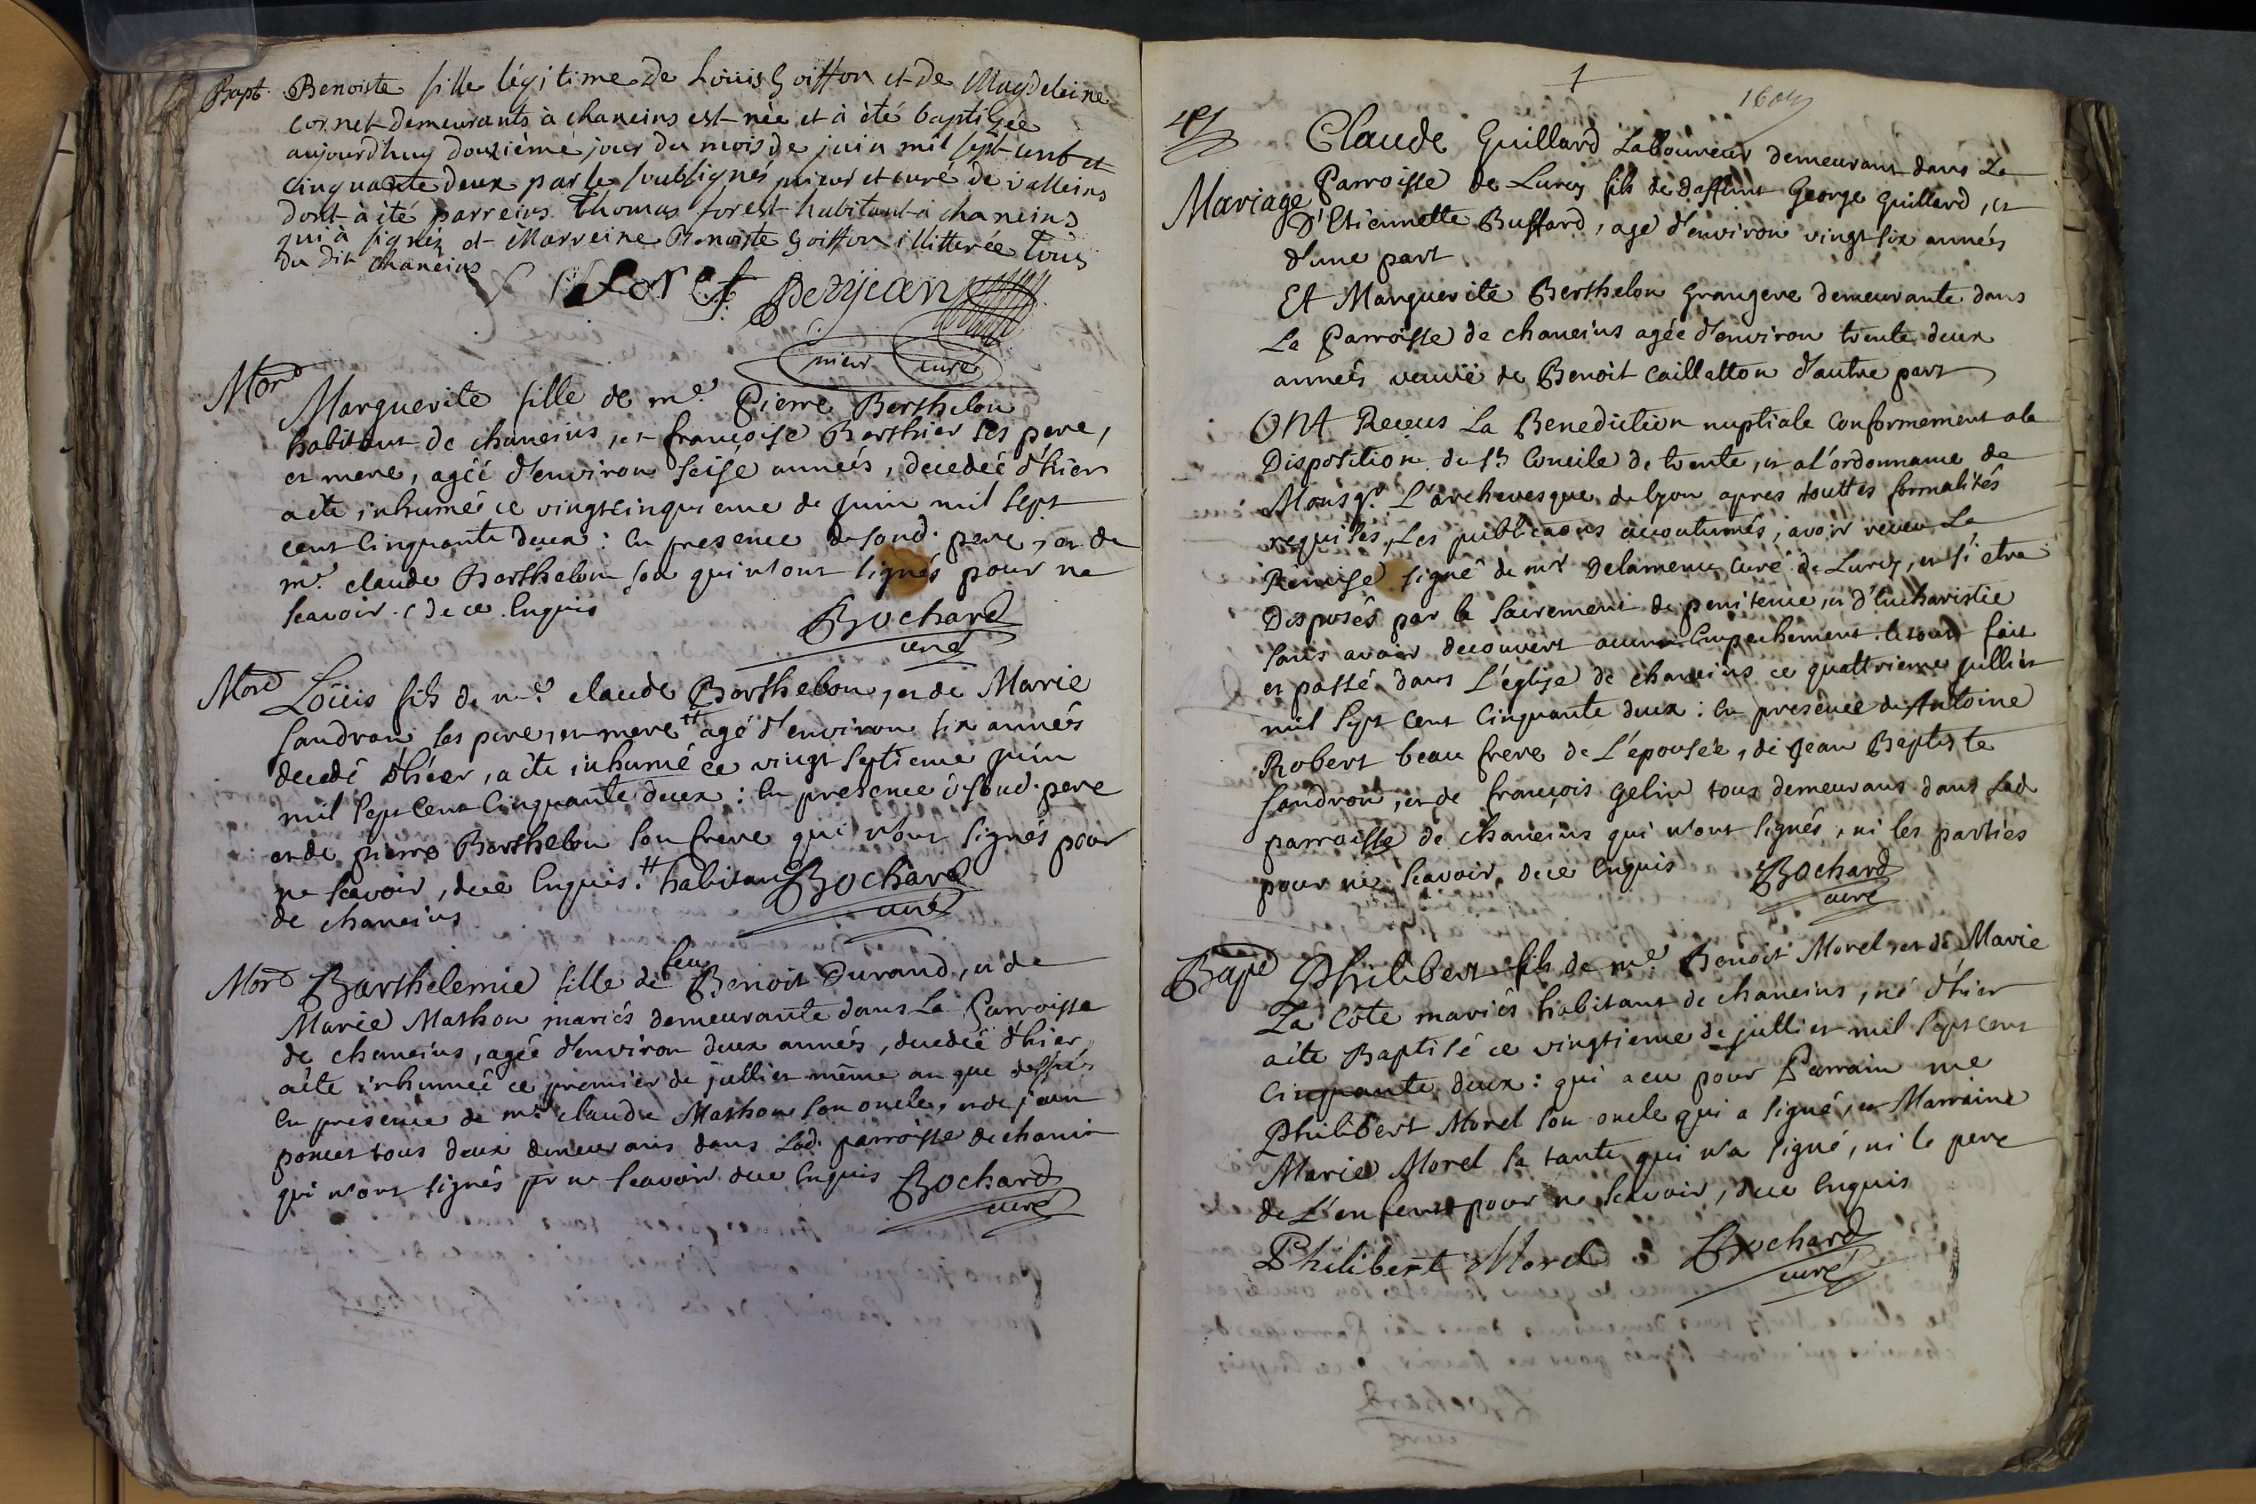 Bapt. Benoiste fille légitime de Loüis Goiffon et de Magdeleine
cornet demeurants à chaneins est née et à été baptizee
aujourdhuy douzième jour du mois de juin mil sept cent et
cinquante deux par le soubsignés prieur et curé de valleins
dont à été parreins Thomas forest habitant à chaneins
qui à signéz et Marreine Benoiste Goiffon illitterée tous
du dit chaneins
forest Dezyjean
prieur curé
Mort
Marguerite fille de me. Pierre Berthelon
habitant de chaneins, et françoise Berthier ses pere,
et mere, agéé d'environ seise années, decedéé d'hier
aete inhumée ce vingtcinquieme de juin mil sept
cent cinquante deux : en presence desond. pere, et de
me. claude Berthelon son qui n'ont signés pour ne
scavoir. de ce. Enquis
Bochard
curé
Mort Loüis fils de me. claude Berthelon, et de Marie
sandron ses pere, et mere # agé d'environ six années
decedé d'hier, a ete inhumé ce vingt septieme juin
mil sept cent cinquante deux : En presence desond. pere
et de pierre Berthelon son frere qui n'ont signés pour
ne scavoir, dece Enquis. # habitans Bochard
de chaneins curé
Mort Barthelemie fille de feu Benoit Durand, et de
Marie Mathon mariés demeurante dans La Parroisse
de chaneins, agéé d'environ deux années, decedéé d'hier,
aéte inhumeé ce premier de juillier même an que dessus
En presence de me. claude Mathon son oncle, et de jean
poncet tous deux demeurans dans lad. parroisse de chanins
qui n'ont signés pr ne scavoir dece enquis Bochard
curé
1
Mariage
Claude Guillard Laboureur demeurant dans La
Parroisse de Lurcy fils de deffunt George Guillard, et
D'Etiennette Buffard, age d'environ vingt six années
d'une part
Et Marguerite Berthelon Grangere demeurante dans
La Parroisse de chaneins agée d'environ trente deux
années veuve de Benoit Caillatton d'autre part
Ont Receus La Benediction nuptiale Conformement ala
Disposition du st. Concile de trente, et a l'ordonnance de
Monsgr. L'archevesque de lyon apres touttes formalités
requises, Les publicaons accoutumés, avoir receu La
Remise signé de mr Delamenue Curé de Lurcy, et s'etre
Disposés par le sacrement de penitence, et d'Eucharistie
sans avoir decouvert aucun Empechement. letout fait
et passé dans L'église de chaneins ce quattrieme jullier
mil sept cent cinquante deux : En presence de Antoine
Robert beau frere de L'épousée, de jean Baptiste
sandron, et de françois gelin tous demeurans dans Lad.
parroisse de chaneins qui n'ont signés, ni les parties
pour ne scavoir, dece Enquis Bochard
curé
Bapt Philibert fils de me. Benoit Morel, et de Marie
La Côte mariés habitant de chaneins, né d'hier
aéte Baptisé ce vingtieme de jullier mil sept cent
cinquante deux : qui a eu pour Parrain me
Philibert Morel son oncle qui a signé, et Marraine
Marie Morel sa tante qui n'a signé, ni le pere
de L'enfent pour ne scavoir, dece Enquis
Philibert Morel Bochard
curé